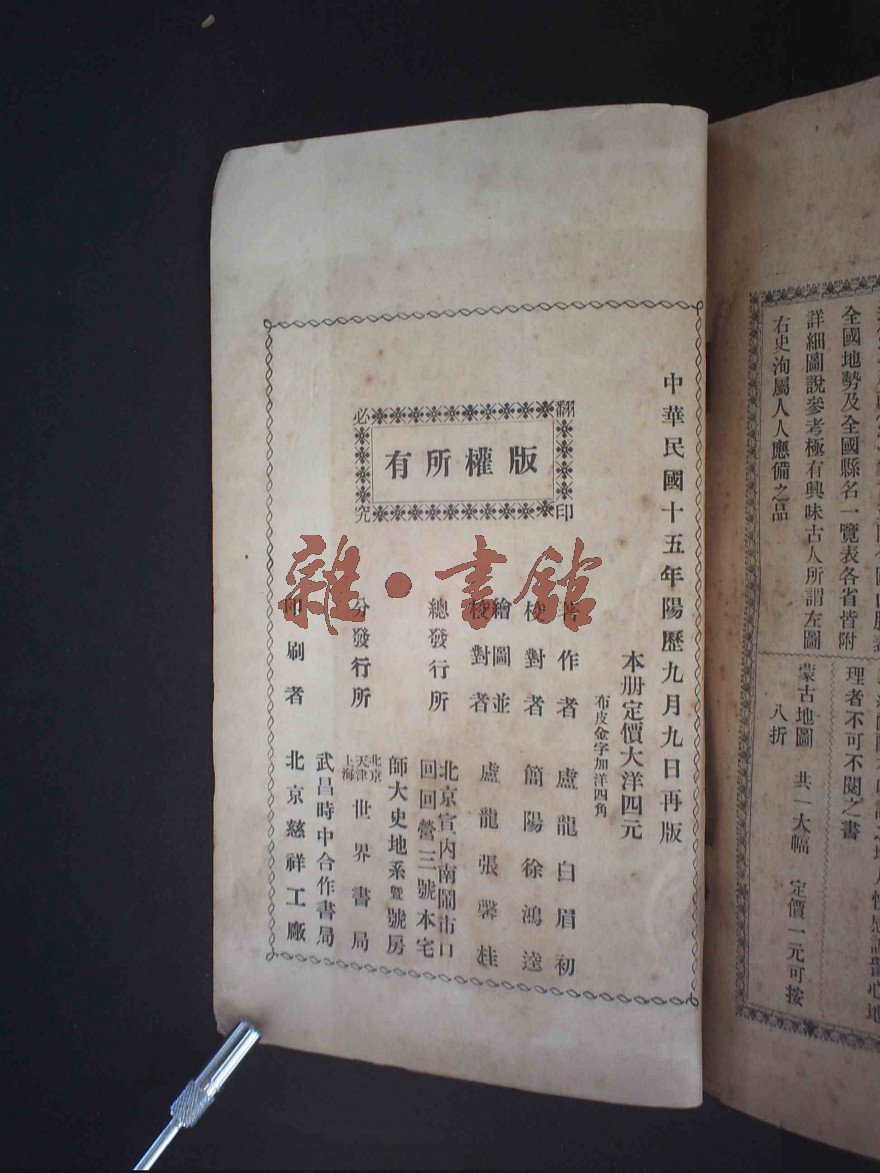 全國地勢及全國縣名一覽表各省皆附
詳細圖說參考極有興味古人所謂左圖
右史洵屬人人應備之品
理者不可不閱之書
蒙古地圖 共一大幅 定價一元可按
八折
中華民國十五年陽歷九月九日再版
本册定價大洋四元
布皮金字加洋四角
翻印必究
版權所有
著作者 盧龍白眉初
校對者 簡陽徐鴻逵
繪圖並校對者 盧龍張馨桂
總發行所 北京宣內南鬧市口回回營三號本宅
師大史地系暨號房
分發行所 北京天津上海世界書局
武昌時中合作書局
印刷者 北京慈祥工廠
雜·書館